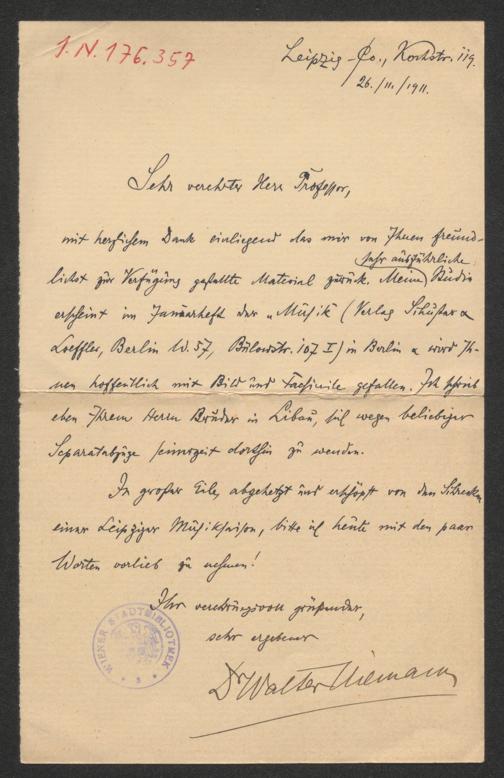 J. N. 176.357
Leipzig-Co., Kochstr. 119.
26./11./1911.
Sehr verehrter Herr Professor,
mit herzlichem Dank einliegend das mir von Ihnen freund-
sehr ausführliche
lichst zur Verfügung gestellte Material zurück. Meine Studie
erscheint im Januarheft der „Musik" (Verlag Schuster &
Loeffler, Berlin W. 57, Bülowstr. 107 I) in Berlin & wird Ih-
nen hoffentlich mit Bild und Facsimile gefallen. Ich schrieb
eben Ihrem Herrn Bruder in Libau, sich wegen beliebiger
Separatabzüge seinerzeit dorthin zu wenden.
In großer Eile, abgehetzt und erschöpft von den Schrecken
einer Leipziger Musiksaison, bitte ich heute mit den paar
Worten vorlieb zu nehmen!
Ihr verehrungsvoll grüßender,
sehr ergebener
Dr Walter Niemann
WIENER STADTBIBLIOTHEK